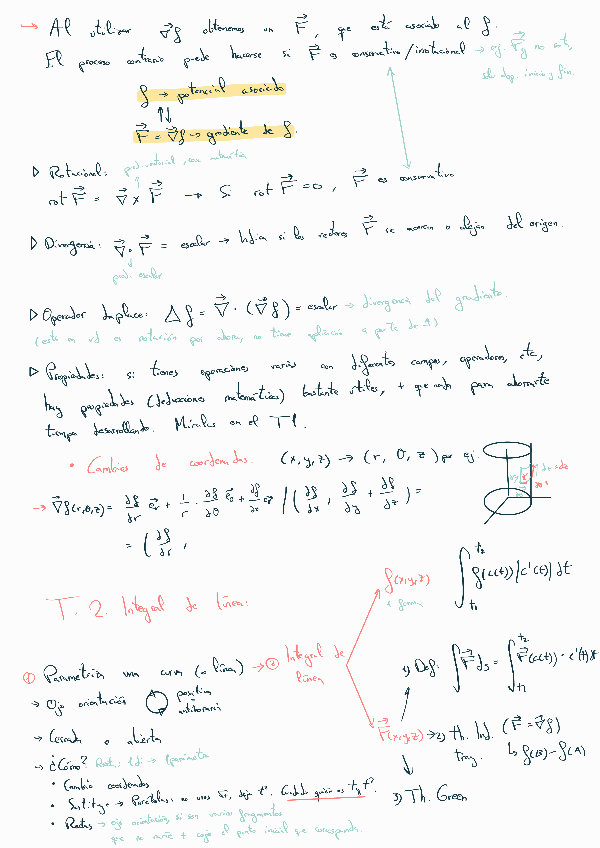 → Al utilizar ∇f obtenemos un F, que está asociado al f.
El proceso contrario puede hacerse si F es conservativo/irrotacional → ej. Fg no rot,
sól dep. inicio y fin.
f → potencial asociado
↑↓
F = ∇f → gradiente de f.
▷ Rotacional: prod. vectorial, con matriz
rot F = ∇ x F → Si rot F = 0, F es conservativo
▷ Divergencia: ∇ · F = escalar → Indica si los vectores F se acercan o alejan del origen.
prod. escalar
▷ Operador Laplace: Δf = ∇ · (∇f) = escalar → divergencia del gradiente.
(esto en rd es notación por ahora, no tiene aplicación a parte de
▷ Propiedades: si tienes operaciones varias con diferentes campos, operadores, etc,
hay propiedades (deducciones matemáticas) bastante útiles, + que nada para ahorrarte
tiempo desarrollando. Míralas en el T1.
• Cambios de coordenadas. (x,y,z) → (r, θ, z) por ej.
→ ∇f(r,θ,z) = ∂f/∂r er + 1/r · ∂f/∂θ eθ + ∂f/∂z / (∂f/∂x, ∂f/∂y + ∂f/∂z) =
= (∂f/∂r,
T. 2. Integral de línea:
f(x,y,z)
∫t1 t2 f(c(t)) |c'(t)| dt
① Parametriza una curva (o línea) → ② Integral de
línea
→ Ojo orientación positiva
antihorario
→ Cerrada o abierta
→ ¿Cómo?
• Cambio coordenadas
• Rectas → ojo orientación, si son varios fragmentos
que no varíe + coje el punto inicial que corresponda.
1) Def. ∫F ds = ∫t1 t2 F(c(t)) · c'(t) dt
F(x,y,z) → 2) Th. Ind. (F = ∇f)
tray. ↳ f(B) - f(A)
3) Th. Green